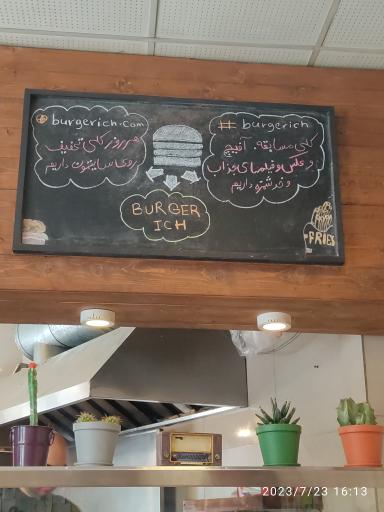 burgerich.com
هر روز کلی تخفیف
روی سایتمون داریم
# burgerich
کلی مسابقه، آفیچ
و عکس و فیلمای جذاب
و خوشمزه داریم
BURGER
ICH
FRIES
2023/7/23 16:13